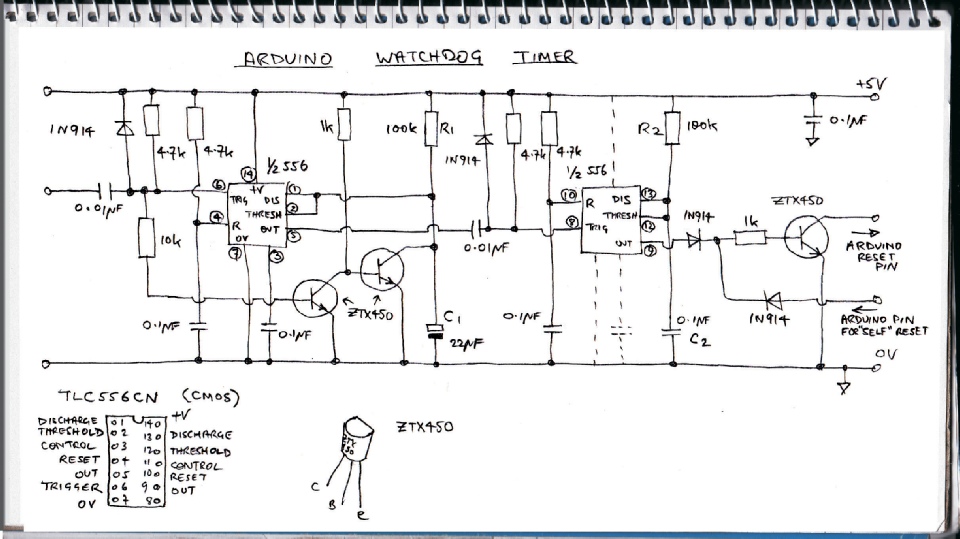 ARDUINO WATCHDOG TIMER
+5V
1N914
4.7k
4.7k
1k
100k R1
1N914
4.7k
4.7k
R2 100k
0.1µF
1/2 556
14
+V
6 TRIG
DIS 1
THRESH 2
4 R
OUT 5
0V
7
3
1/2 556
10 R
DIS 13
THRESH 12
8 TRIG
OUT 9
0.01µF
10k
0.01µF
1N914
1k
ZTX450
ARDUINO
RESET
PIN
1N914
ARDUINO PIN
FOR "SELF" RESET
ZTX450
0.1µF
0.1µF
C1
22µF
0.1µF
0.1µF
C2
0V
TLC556CN (CMOS)
DISCHARGE 01 140 +V
THRESHOLD 02 130 DISCHARGE
CONTROL 03 120 THRESHOLD
RESET 04 110 CONTROL
OUT 05 100 RESET
TRIGGER 06 90 OUT
0V 07 80
ZTX450
ZTX
50
C
B
e